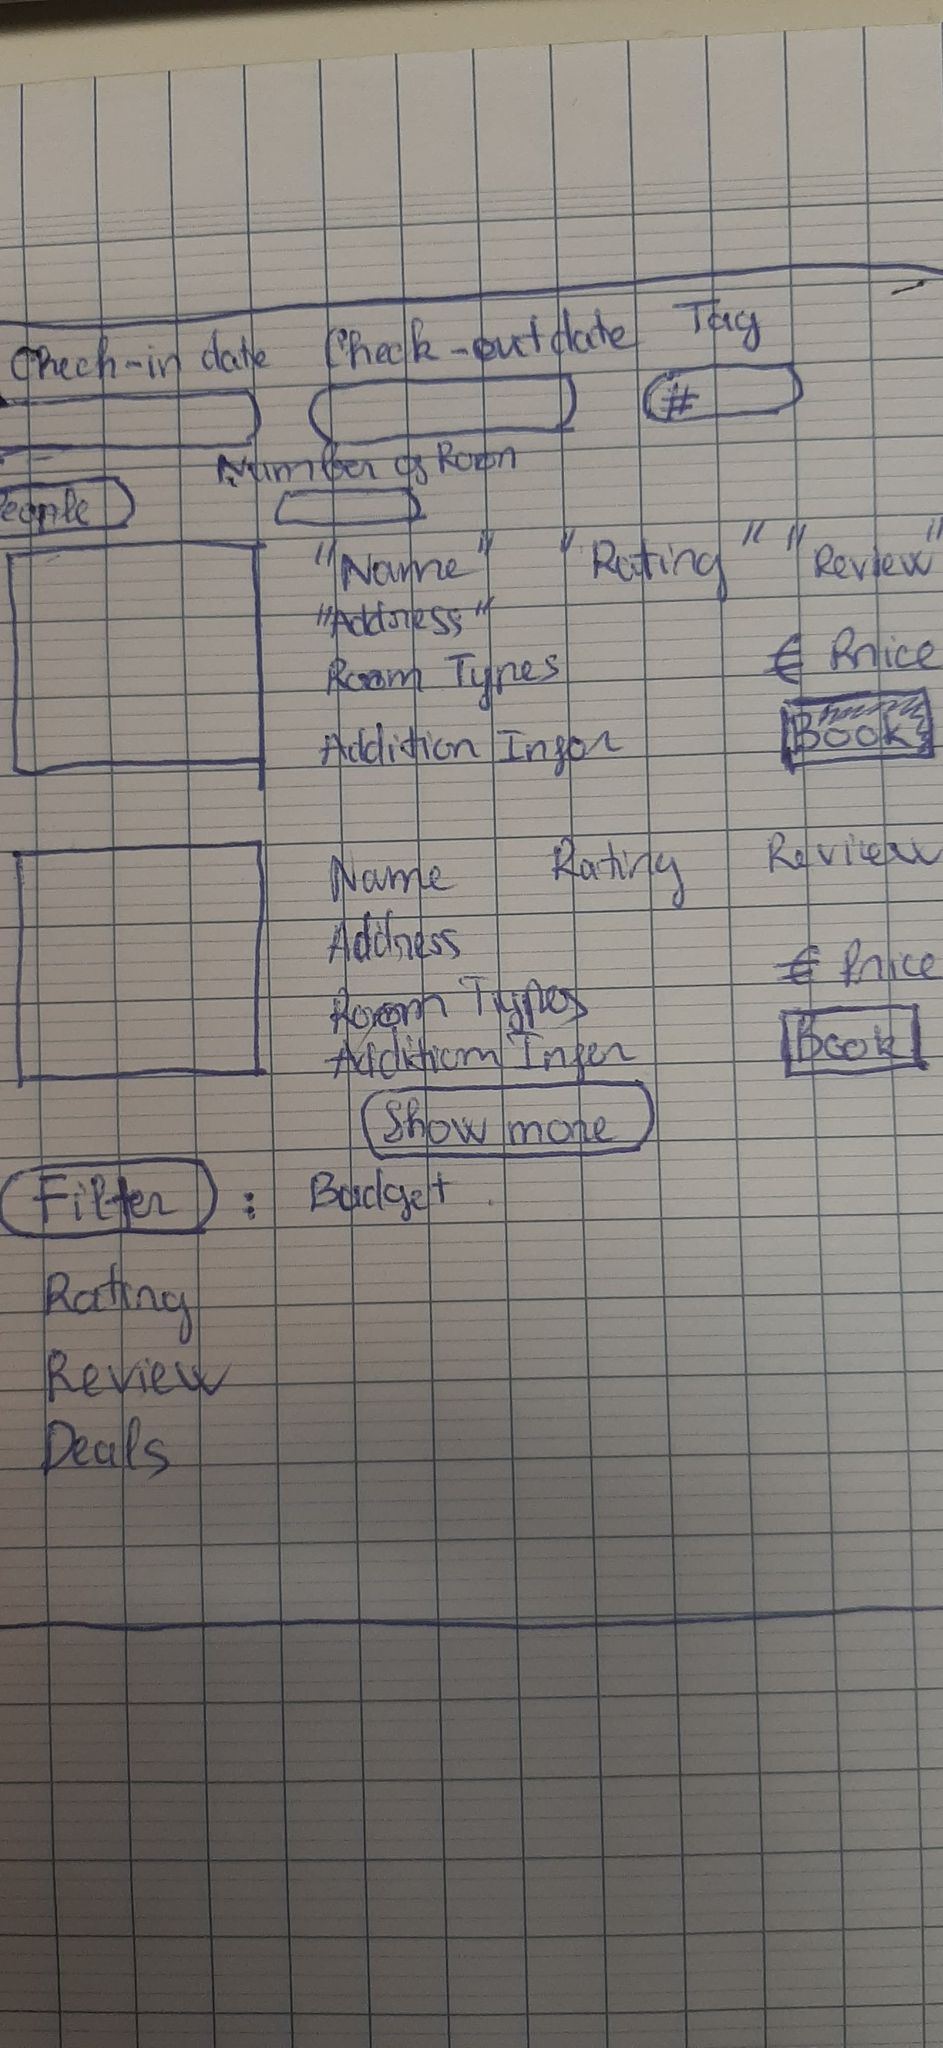 Check-in date Check-out date Tag
#
Number of Room
People
"Name" "Rating" "Review"
"Address"
Room Types € Price
Addition Infor Book
Name Rating Review
Address
€ Price
Room Types
Book
Addition Infor
Show more
Filter : Budget
Rating
Review
Deals